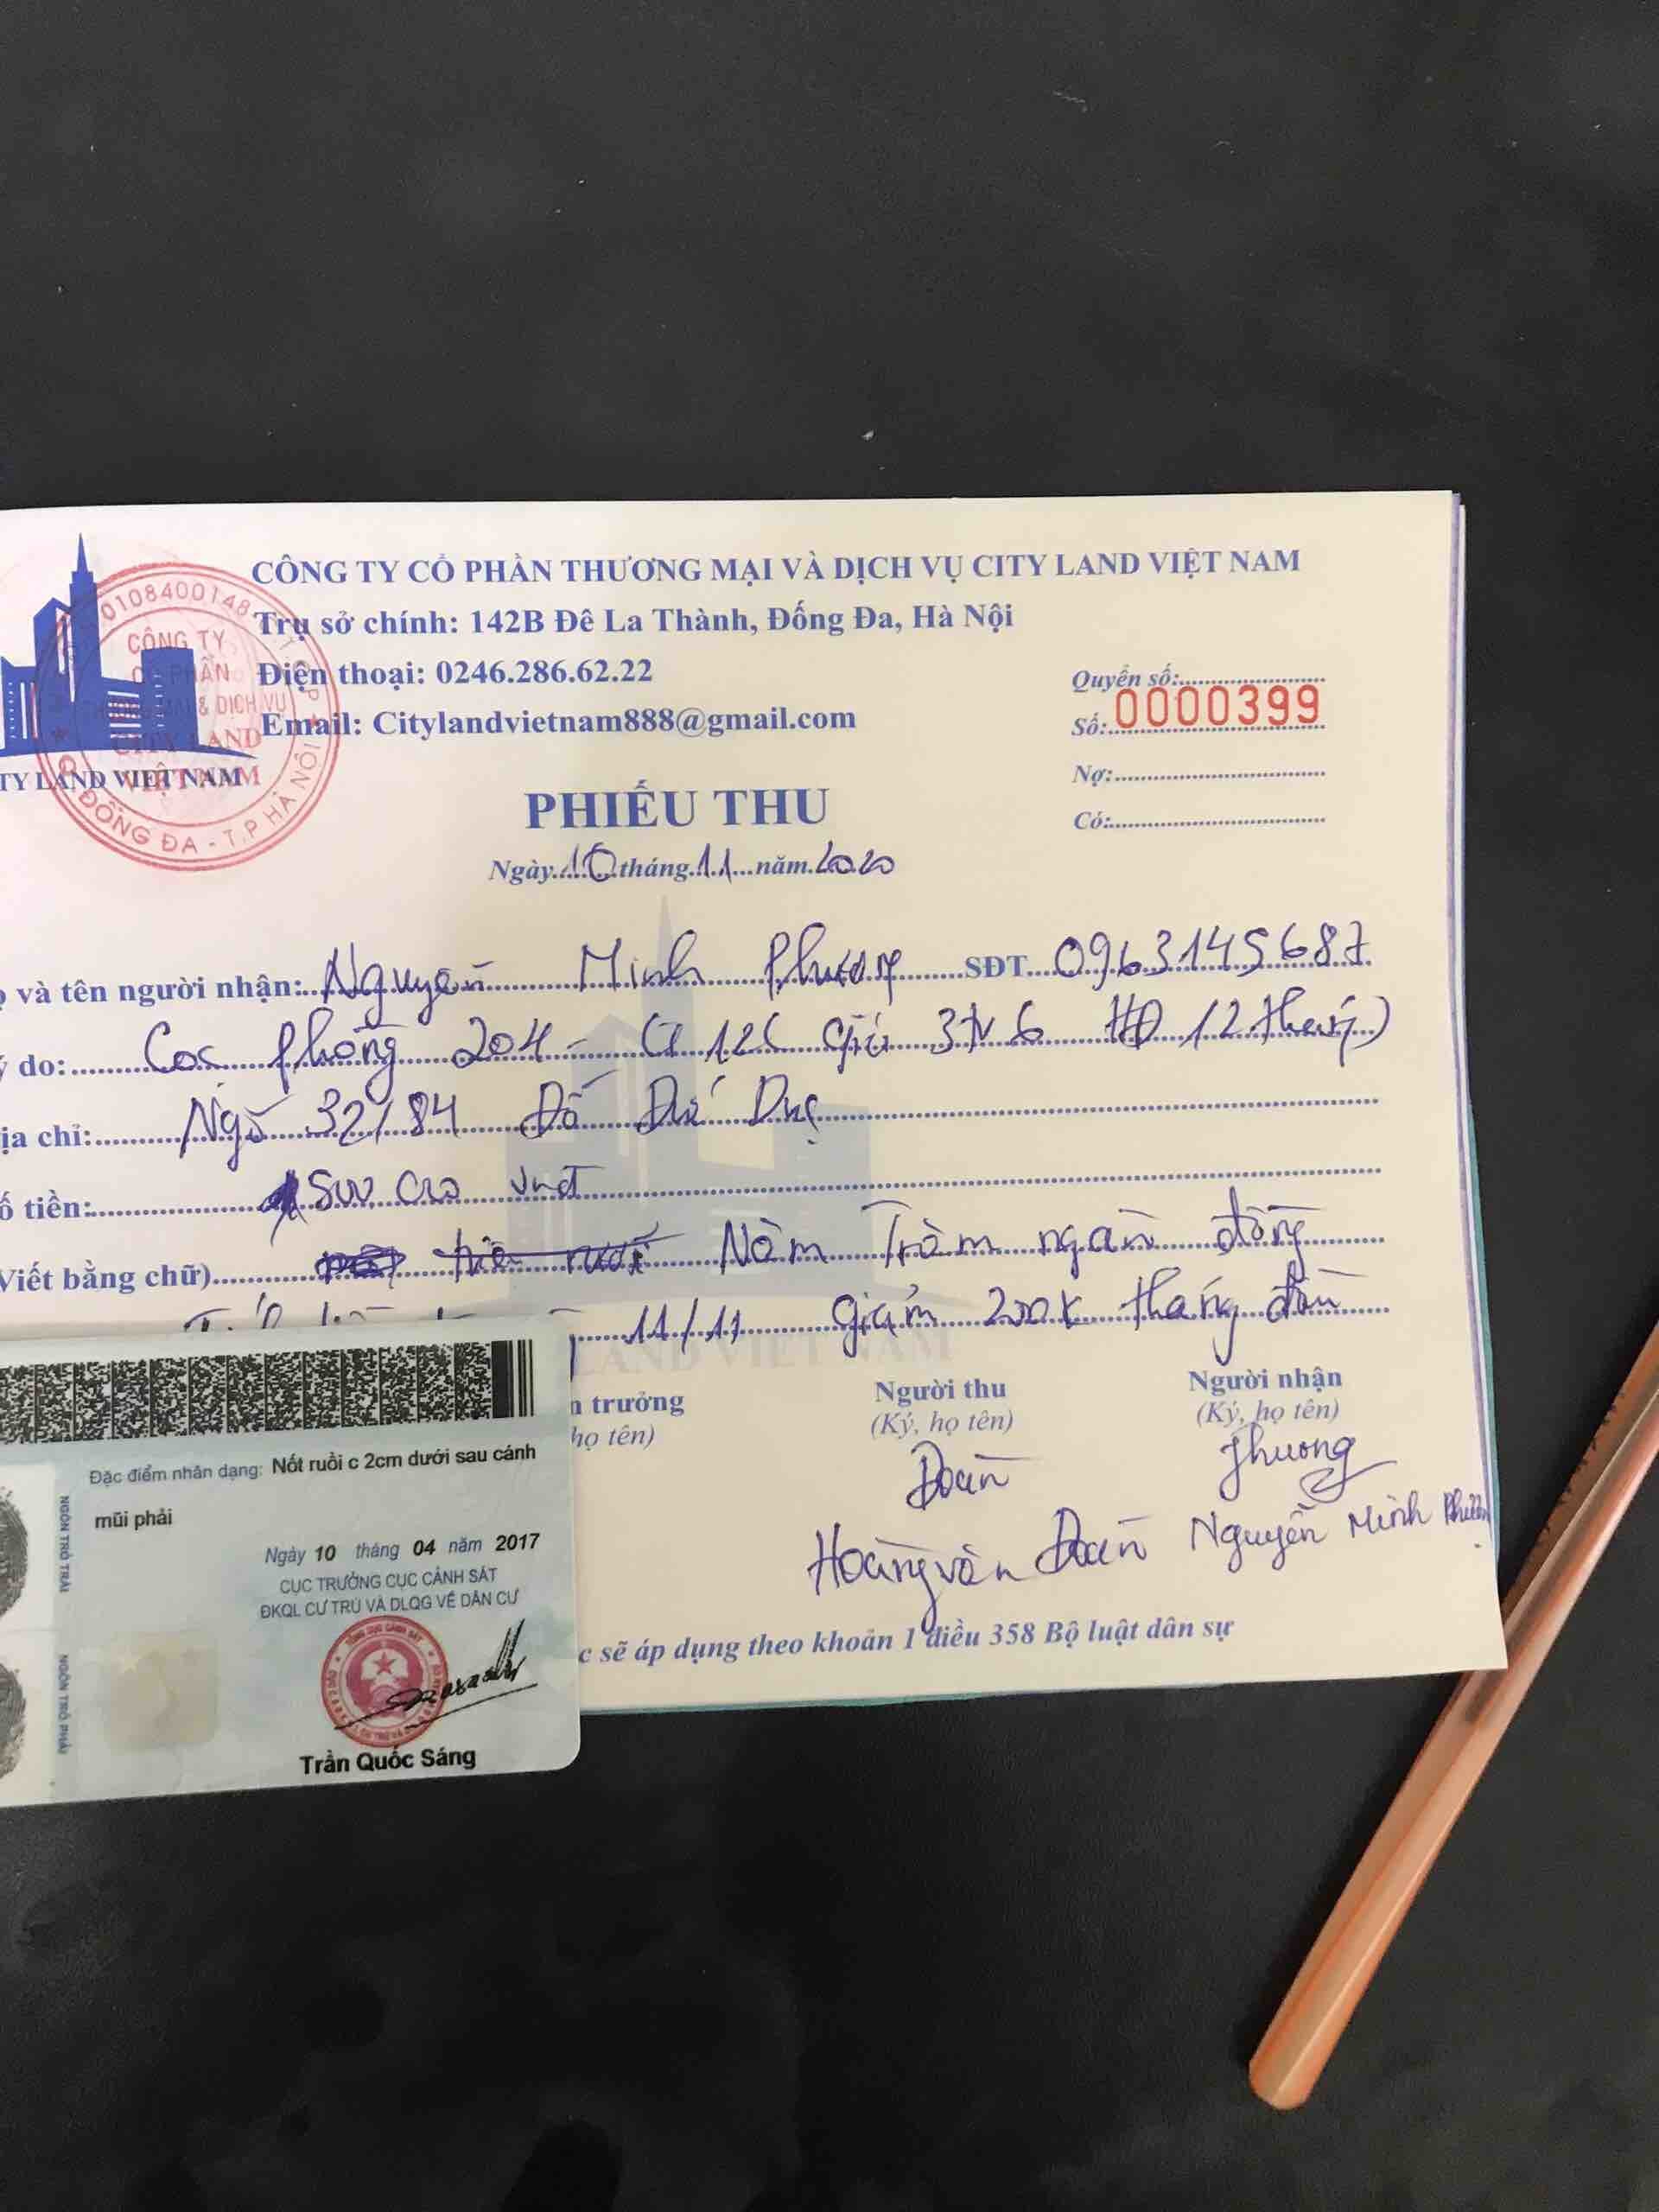 CÔNG TY CỔ PHẦN THƯƠNG MẠI VÀ DỊCH VỤ CITY LAND VIỆT NAM
Trụ sở chính: 142B Đê La Thành, Đống Đa, Hà Nội
Điện thoại: 0246.286.62.22
Email: Citylandvietnam888@gmail.com
0108400148
CÔNG TY
CỔ PHẦN
& DỊCH VỤ
CITY LAND
VIỆT NAM
Q. ĐỐNG ĐA - T.P HÀ NỘI
TY LAND VIỆT NAM
Quyển số:
Số: 0000399
Nợ:
Có:
PHIẾU THU
Ngày 10 tháng 11 năm 2020
và tên người nhận: Nguyễn Minh Phương SĐT 0963145687
do: Cọc phòng 204 - Giá 3tr6 HĐ 12 tháng)
ịa chỉ: Ngõ 32/84 Đỗ Đức Dục
ố tiền: vnđ
Viết bằng chữ) Năm Trăm ngàn đồng
11/11 giảm 200k tháng đầu
LAND VIỆT NAM
trưởng
họ tên)
Người thu
(Ký, họ tên)
Đoàn
Hoàng văn Đoàn
Người nhận
(Ký, họ tên)
Phương
Nguyễn Minh Phương
c sẽ áp dụng theo khoản 1 điều 358 Bộ luật dân sự
Đặc điểm nhân dạng: Nốt ruồi c 2cm dưới sau cánh
mũi phải
NGÓN TRỎ TRÁI
NGÓN TRỎ PHẢI
Ngày 10 tháng 04 năm 2017
CỤC TRƯỞNG CỤC CẢNH SÁT
ĐKQL CƯ TRÚ VÀ DLQG VỀ DÂN CƯ
Trần Quốc Sáng